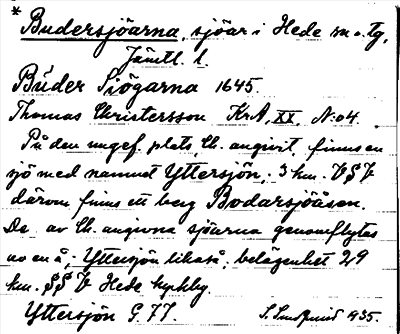 * Budersjöarna, sjöar i Hede sn o. tg,
Jämtl. l.
Búder Siögarna 1645.
Thomas Christersson KrA, XX, N:o 4.
På den ungef. plats, Ch. angivit, finns en
sjö med namnet Yttersjön; 3 km. VSV
därom finns ett berg Bodarsjöåsen.
De av Ch. angivna sjöarna genomflytes
av en å; Yttersjön likaså, belägenhet 29
km. SSV Hede kyrkby.
Yttersjön G. 77. S. Lundqvist 1935.